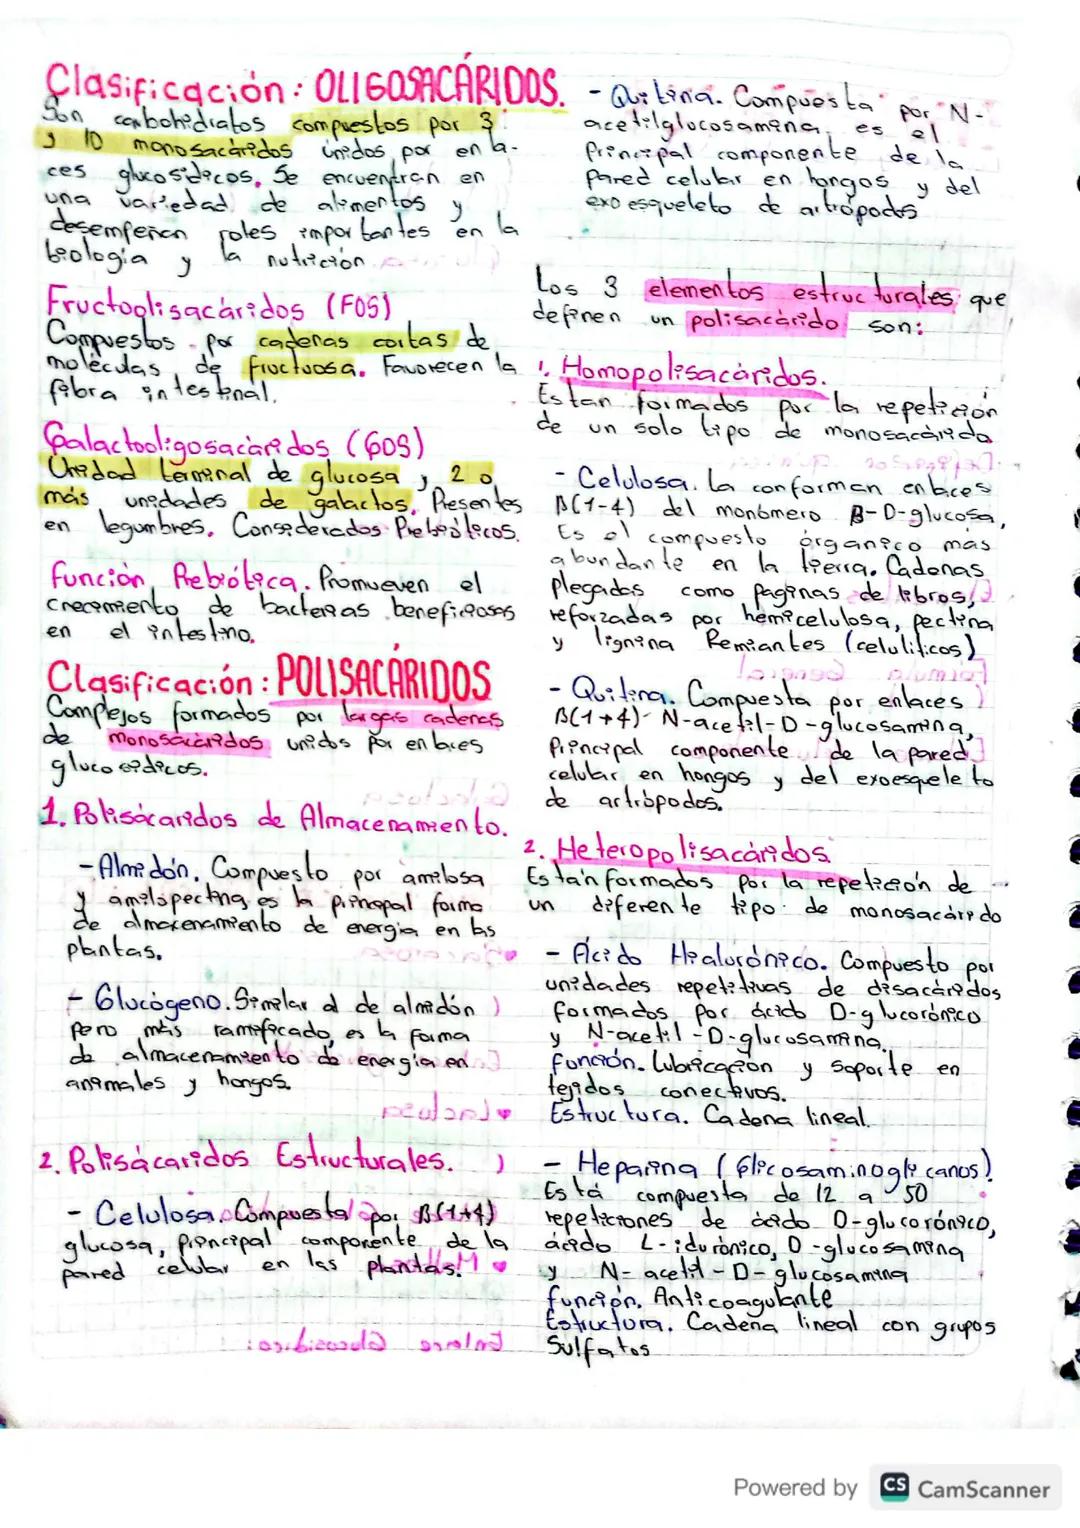 Clasificación: OLIGOSACÁRIDOS.
Son carbohidratos compuestos por 3
y 10 monosacáridos unidos por enla-
ces glucosídicos. Se encuentran en
una variedad de alimentos y
desempeñan roles importantes en la
biología y la nutrición.
Fructoolisacáridos (FOS)
Compuestos por cadenas cortas de
moléculas de fructuosa. Favorecen la
fibra intestinal.
Galactooligosacáridos (GOS)
Unidad terminal de glucosa y 2 o
más unidades de galactos. Presentes
en legumbres. Considerados Prebióticos.
Función Prebiótica. Promueven el
crecimiento de bacterias beneficiosas
en el intestino.
Clasificación: POLISACÁRIDOS
Complejos formados por largas cadenas
de monosacáridos unidos por enlaces
glucosídicos.
1. Polisácaridos de Almacenamiento.
- Almidón. Compuesto por amilosa
y amilopectina, es la principal forma
de almacenamiento de energía en las
plantas.
- Glucógeno. Similar al de almidón
pero más ramificado, es la forma
de almacenamiento de energía en
animales y hongos.
2. Polisácaridos Estructurales.
- Celulosa. Compuesta por β(1→4)
glucosa, principal componente de la
pared celular en las plantas.
- Quitina. Compuesta por N-
acetilglucosamina, es el
principal componente de la
pared celular en hongos y del
exoesqueleto de artrópodos
Los 3 elementos estructurales que
definen un polisacárido son:
1. Homopolisacáridos.
Estan formados por la repetición
de un solo tipo de monosacárido
- Celulosa. La conforman enlaces
β(1-4) del monómero β-D-glucosa,
Es el compuesto órganico más
abundante en la tierra. Cadenas
plegadas como paginas de libros,
reforzadas por hemicelulosa, pectina
y lignina Remiantes (celulíticos)
- Quitina. Compuesta por enlaces
β(1→4)- N-acetil-D-glucosamina,
Principal componente de la pared
celular en hongos y del exoesqueleto
de artrópodos.
2. Heteropolisacáridos.
Están formados por la repetición de
un diferente tipo de monosacárido
- Ácido Hialurónico. Compuesto por
unidades repetitivas de disacáridos
formados por ácido D-glucorónico
y N-acetil-D-glucosamina.
función. Lubricación y soporte en
tejidos conectivos.
Estructura. Cadena lineal.
- Heparina (Glicosaminoglicanos)
Está compuesta de 12 a 50
repeticiones de ácido D-glucorónico,
ácido L-idurónico, D-glucosamina
y N-acetil-D-glucosamina
función. Anticoagulante
Estructura. Cadena lineal con grupos
Sulfatos
Powered by CS CamScanner